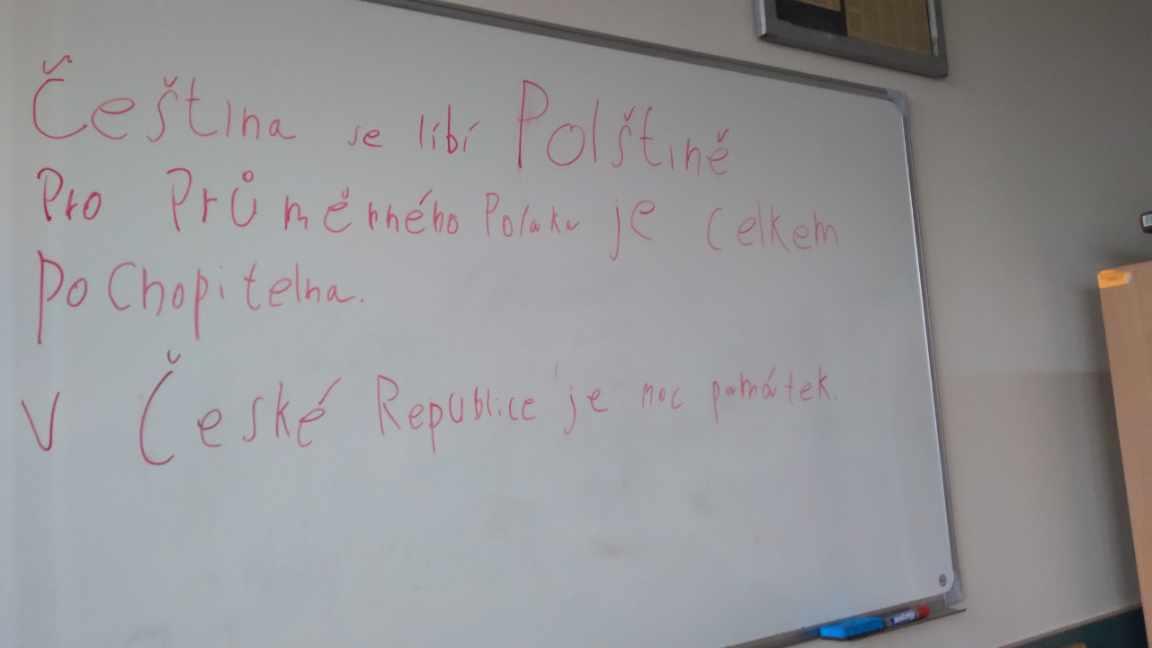 Čeština se líbí Polštině
Pro Průměrného Polaka je celkem
pochopitelna.
V České Republice je moc památek.